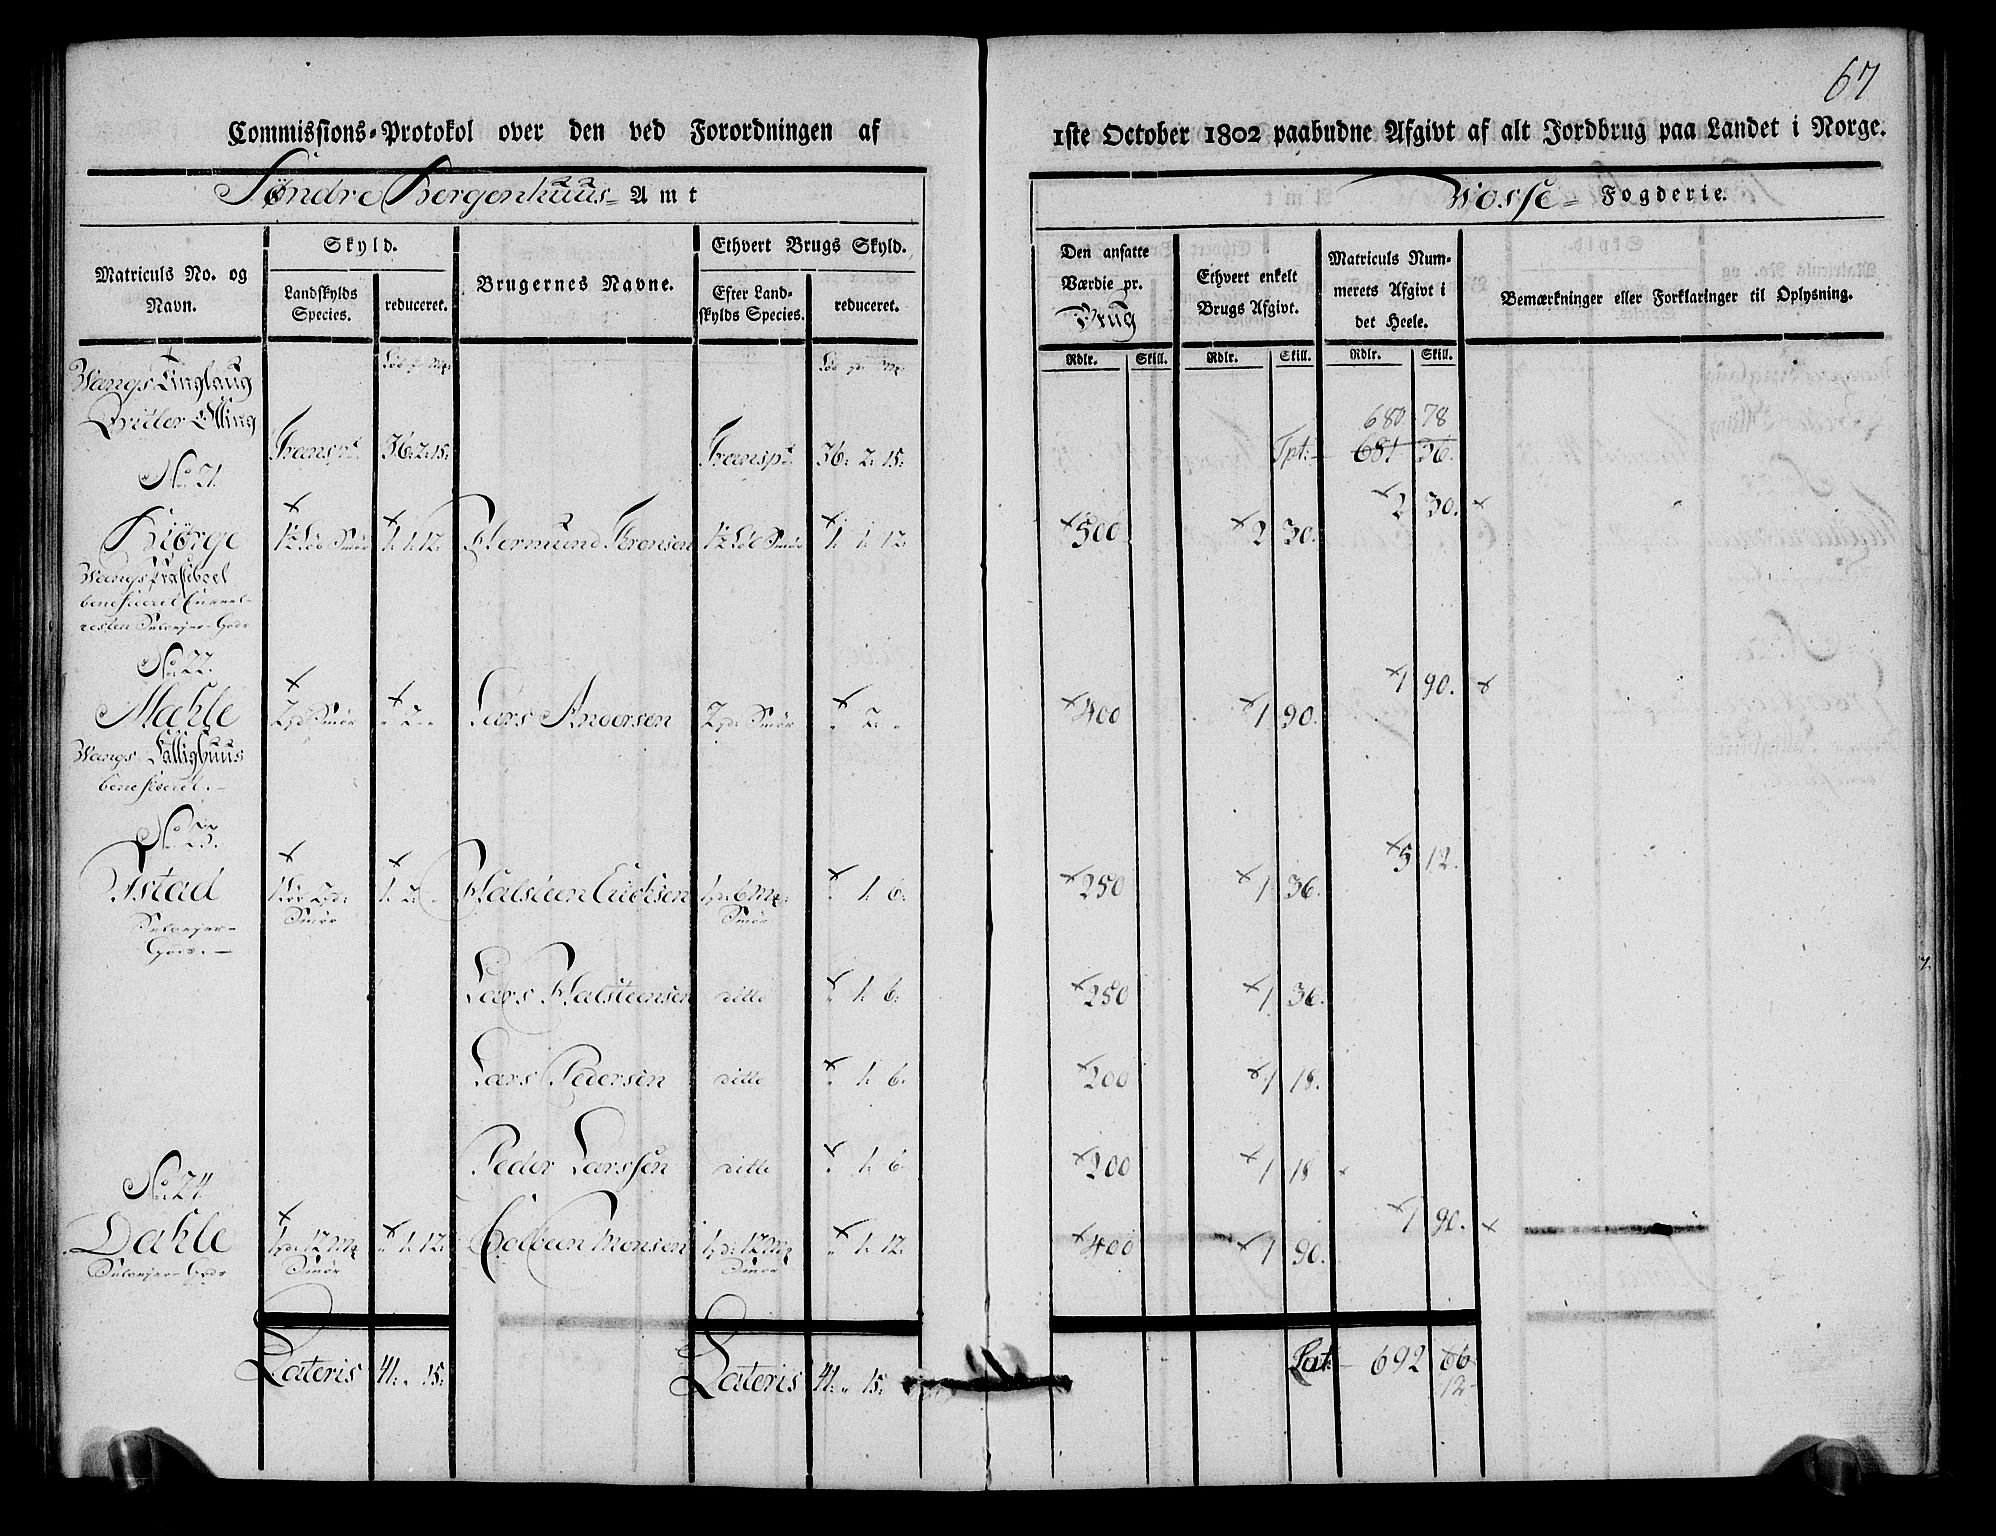 67
Commissions-Protokol over den ved Forordningen af
1ste October 1802 paabudne Afgivt af alt Jordbrug paa Landet i Norge.
Søndre Bergenhuus- Amt
Vosse- Fogderie.
Matriculs No. og Navn.
Skyld.
Landskylds Species.
reduceret.
Brugernes Navne.
Ethvert Brugs Skyld.
Efter Landskylds Species.
reduceret.
Den ansatte Værdie pr. Brug
Ethvert enkelt Brugs Afgivt.
Matriculs Nummerets Afgivt i det Heele.
Bemærkninger eller Forklaringer til Oplysning.
Rdlr. Skill. Rdlr. Skill. Rdlr. Skill.
Wangs Tinglaug
Qvitler Otting
Transpt. 36. 2. 15. Transpt. 36. 2. 15. Tpt: 681 26.
680 78
No. 21.
2 30.
Kiørge 1½ Lød Smør 1. 1. 12. Hermund 1½ Lød Smør 1. 1. 12. 500 2 30.
Wangs Præsteboel
beneficeret
Selvejer-Gods
No. 22.
1 90.
Mæhle 2 pd. Smør " 2. " Lars Andersen 2 pd. Smør " 2. " 400 1 90.
Wangs Fattighuus
beneficeret.
No. 23.
5 12.
Istad 1 Lød 2 pd. Smør 1. 2. " Halsteen Erichsen 1 pd. 6 Mk. Smør " 1. 6. 250 1 36.
Selvejer-
Gods.
Lars Halsteensen ditto " 1. 6. 250 1 36.
Lars Pedersen ditto " 1. 6. 200 1 18.
Peder Larssen ditto " 1. 6. 200 1 18
No. 24
1 90.
Dahle 1 pd. 12 Mk Smør " 1. 12. Colbeen Monsen 1 pd. 12 Mk Smør " 1. 12. 400 1 90.
Selvejer-Gods
Lateris 41. " 15. Lateris 41. " 15. Lat: 692 66
12